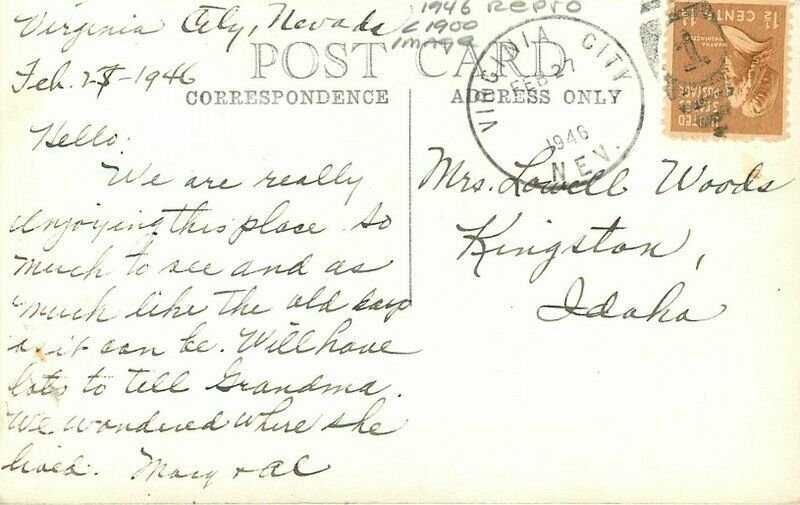 Virginia City, Nevada
Feb. 25-1946
1946 REPRO
C1900
IMAGE
POST CARD
CORRESPONDENCE
ADDRESS ONLY
VIRGINIA CITY
FEB 27
1946
NEV.
1½ CENTS 1½
MARTHA WASHINGTON
UNITED STATES POSTAGE
1
Hello:
We are really
enjoying this place. So
much to see and as
much like the old days
as it can be. Will have
lots to tell Grandma.
We wondered where she
lived. Mary + Al
Mrs. Lowell Woods
Kingston,
Idaho